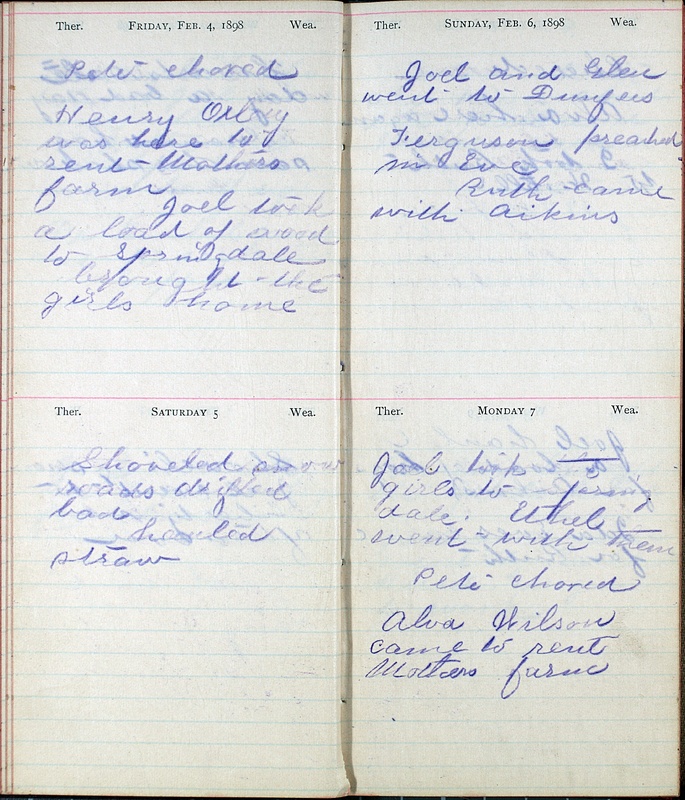 Ther. FRIDAY, FEB. 4, 1898 Wea.
Pete chored
Henry
was here to
rent Mothers
farm
Joel took
a load of wood
to Springdale
brought the
girls home
Ther. SATURDAY 5 Wea.
Shoveled snow
roads drifted
bad
hauled
straw
Ther. SUNDAY, FEB. 6, 1898 Wea.
Joel and Glen
went to
Ferguson preached
in Eve
Ruth came
with Aikins
Ther. MONDAY 7 Wea.
Joel took
girls to Spring
dale. Ethel
went with them
Pete chored
Alva Wilson
came to rent
Mothers farm